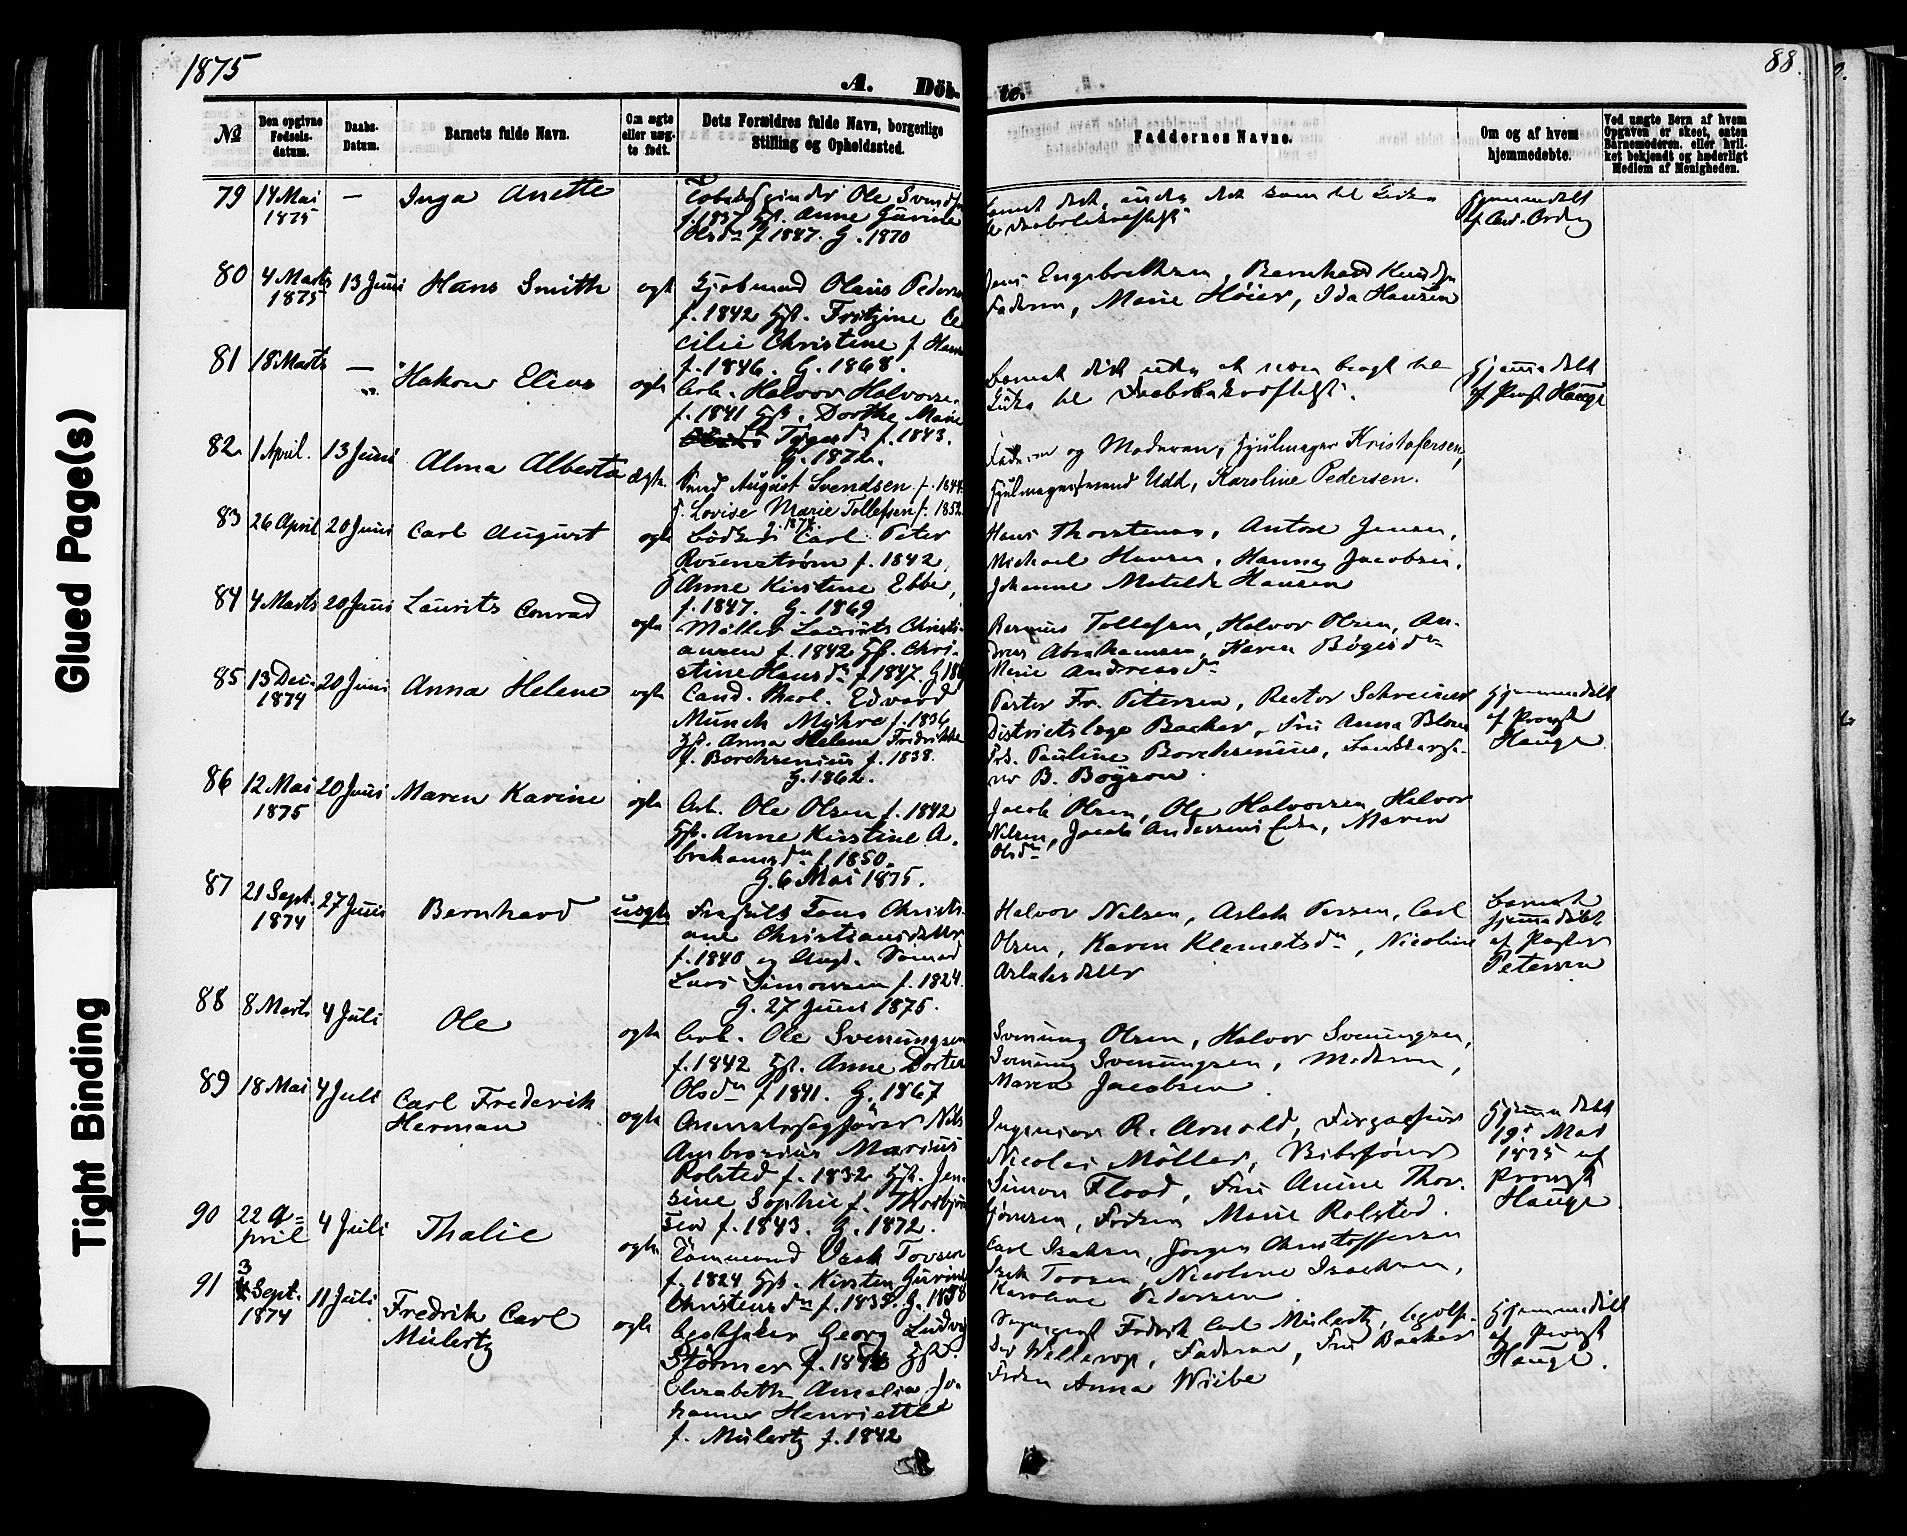 1875
88.
A. Döb-
te.
№
Den opgivne Fødsels-datum.
Daabs-Datum.
Barnets fulde Navn.
Om ægte eller uægte født.
Dets Forældres fulde Navn, borgerlige Stilling og Opholdssted.
Faddernes Navne.
Om og af hvem hjemmedøbte.
Ved uægte Børn af hvem Opgaven er skeet, enten Barnemoderen, eller hvilket bekjendt og hæderligt Medlem af Menigheden.
79 14 Mai 1875 — Inga Anette
Ole Svends
f. 1837 Hst. Anne Gurine
Olsdr f 1847. G. 1870
80 4 Marts 1875 13 Juni Hans Smith ægte
Olaus Peders
f. 1842 Hst. Fritzine Ce
cilie Christine f Hans
f. 1846. G. 1868.
Jens Engebrethsen, Bernhard Knuds
Faderen, Marie Høier, Ida Hansen
81 18 Marts — Hakon Elias ægte
Arb. Halvor Halvorse
f. 1841 Hst. Dorthe Marie
f. 1843.
G. 1872.
Hjemmedøbt
af Provst Hauge
82 1 April. 13 Juni Alma Alberta ægte
August Svendsen f. 1844
Lovise Marie Tollefsen f. 1852
og Moderen, Hjulmager Kristofersen,
Udd, Karoline Pedersen.
83 26 April 20 Juni Carl August ægte
Carl Peter
Rosenstrøm f. 1842,
Anne Kirstine Ebbe,
f. 1847. G. 1869
Hans Thorstensen, Anton Jensen,
Michael Hansen, Hanna Jacobsen,
Johanne Matilde Hansen
84 4 Marts 20 Juni Laurits Conrad ægte
Møller Laurits Christi-
ansen f. 1842 Hst. Chri-
stine Hansdr f 1847. G 186
Rasmus Tollefsen, Halvor Olsen, An-
dreas Abrahamsen, Karen Bøgesdr
Marie Andreasdr
85 13 Dec. 1874 20 Juni Anna Helene ægte
Cand. theol. Edvard
Munch Myhre f. 1836
Hst. Anna Helene Fredrikke
f. Borchsenius f. 1838.
G. 1862.
Pastor Fr. Petersen, Rector Schreiner
Districtslæge Backer, Fru Anna Blom
Frk. Pauline Borchsenius,
B. Boyson.
Hjemmedøbt
af Provst
Hauge
86 12 Mai 1875 20 Juni Maren Karine ægte
Arb. Ole Olsen f. 1842
Hst. Anne Kirstine A-
brahamsdr f. 1850.
G. 6 Mai 1875.
Jacob Olsen, Ole Halvorsen, Halvor
Nilsen, Jacob Andersens Enke, Maren
Olsdr
87 21 Sept. 1874 27 Juni Bernhard uægte
Christi-
ane Christiansdatter
f. 1840 og Ungk. Sømand
Lars Simonsen f. 1824.
G. 27 Juni 1875.
Halvor Nilsen, Aslak Persen, Carl
Olsen, Karen Klemetsdr, Nicoline
Aslaksdatter
Barnet
hjemmedøbt
af Pastor
Petersen
88 8 Marts 4 Juli Ole ægte
Arb. Ole Svenungsen
f. 1842 Hst. Anne Dortea
Olsdr f 1841. G. 1867
Svenung Olsen, Halvor Svenungsen,
Svenung Svenungsen, Moderen,
Maren Jacobsen
89 18 Mai 4 Juli Carl Frederik
Herman ægte
Overretssagfører Nils
Ambrosius Marius
Rolsted f. 1832 Hst. Jen-
sine Sophie f. Thorbjørn
sen f. 1843. G. 1872.
Ingeniør R. Arnold,
Nicolai Møller,
Simon Flood, Fru Anine Thor-
bjørnsen, Frøken Marie Rolsted.
Hjemmedøbt
19d Mai
1875 af
Provst
Hauge
90 22 A-
pril 4 Juli Thalie ægte
Tømmermand Isak Torsen
f. 1824 Hst. Kirsten Gurine
Christensdr f. 1838. G. 1858
Carl Isaksen, Jørgen Christoffersen
Isak Torsen, Nicoline Isachsen,
Karoline Pedersen
91 3 Sept. 1874 11 Juli Fredrik Carl
Mülertz ægte
Apotheker Georg Ludvig
Størmer f. 1842 Hst.
Elisabeth Amalia Jo-
hanne Henriette
f. Mülertz f. 1842
Sognepræst Fredrik Carl Mülertz,
Wellerop, Faderen, Fru Backer
Frøken Anna Wiibe
Hjemmedøbt
af Provst
Hauge.
Glued Page(s)
Tight Binding